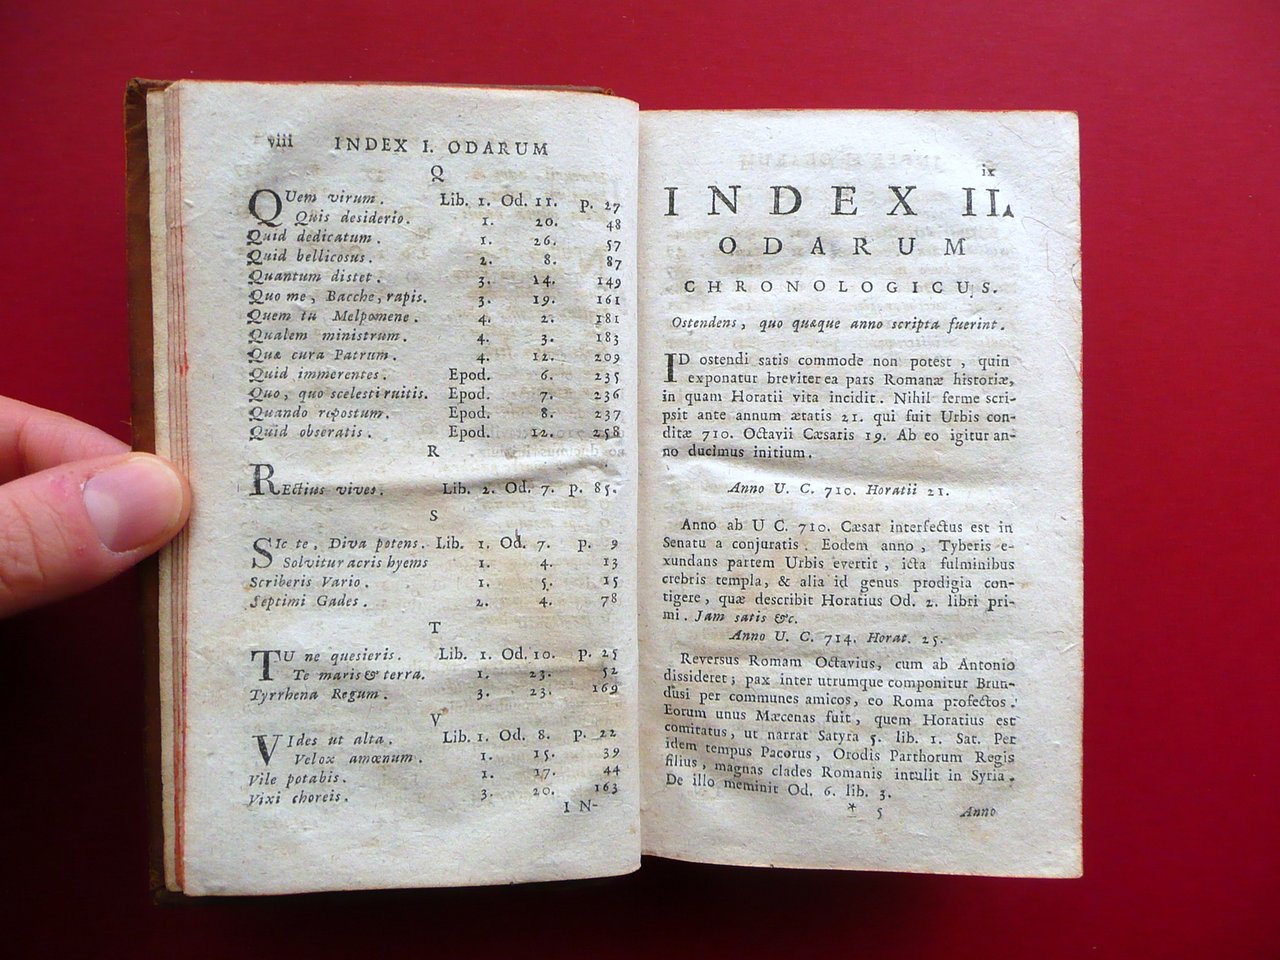 viii INDEX I. ODARUM
Q
QUem virum. Lib. 1. Od. 11. p. 27
Quis desiderio. 1. 20. 48
Quid dedicatum. 1. 26. 57
Quid bellicosus. 2. 8. 87
Quantum distet. 3. 14. 149
Quo me, Bacche, rapis. 3. 19. 161
Quem tu Melpomene. 4. 2. 181
Qualem ministrum. 4. 3. 183
Quæ cura Patrum. 4. 12. 209
Quid immerentes. Epod. 6. 235
Quo, quo scelesti ruitis. Epod. 7. 236
Quando repostum. Epod. 8. 237
Quid obseratis. Epod. 12. 258
R
REctius vives. Lib. 2. Od. 7. p. 85.
S
SIc te, Diva potens. Lib. 1. Od. 7. p. 9
Solvitur acris hyems 1. 4. 13
Scriberis Vario. 1. 5. 15
Septimi Gades. 2. 4. 78
T
TU ne quesieris. Lib. 1. Od. 10. p. 25
Te maris & terra. 1. 23. 52
Tyrrhena Regum. 3. 23. 169
V
VIdes ut alta. Lib. 1. Od. 8. p. 22
Velox amœnum. 1. 15. 39
Vile potabis. 1. 17. 44
Vixi choreis. 3. 20. 163
IN-
ix
INDEX II.
ODARUM
CHRONOLOGICUS.
Ostendens, quo quæque anno scripta fuerint.
ID ostendi satis commode non potest, quin
exponatur breviter ea pars Romanæ historiæ,
in quam Horatii vita incidit. Nihil ferme scri-
psit ante annum ætatis 21. qui fuit Urbis con-
ditæ 710. Octavii Cæsaris 19. Ab eo igitur an-
no ducimus initium.
Anno U. C. 710. Horatii 21.
Anno ab U C. 710. Cæsar interfectus est in
Senatu a conjuratis. Eodem anno, Tyberis e-
xundans partem Urbis evertit, icta fulminibus
crebris templa, & alia id genus prodigia con-
tigere, quæ describit Horatius Od. 2. libri pri-
mi. Jam satis &c.
Anno U. C. 714. Horat. 25.
Reversus Romam Octavius, cum ab Antonio
dissideret; pax inter utrumque componitur Brun-
dusi per communes amicos, eo Roma profectos.
Eorum unus Mæcenas fuit, quem Horatius est
comitatus, ut narrat Satyra 5. lib. 1. Sat. Per
idem tempus Pacorus, Orodis Parthorum Regis
filius, magnas clades Romanis intulit in Syria.
De illo meminit Od. 6. lib. 3.
* 5 Anno